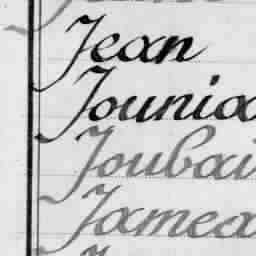 Jean
Jounia
Joubai
Jamea